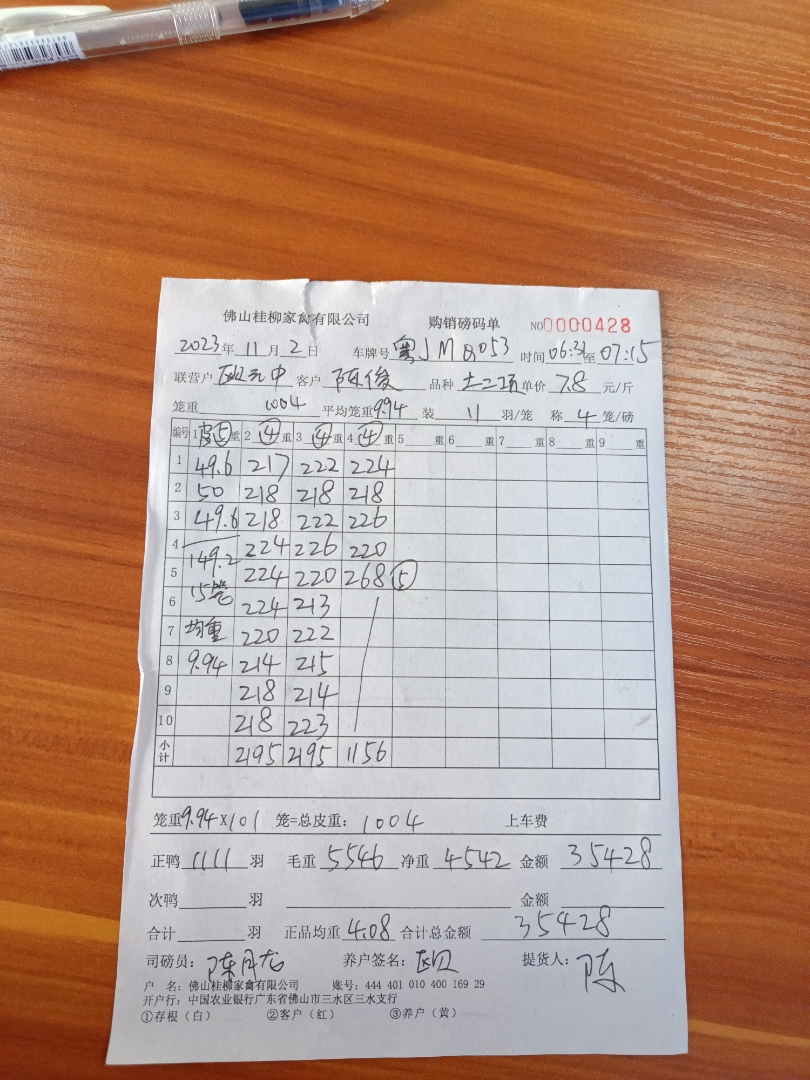 佛山桂柳家禽有限公司 购销磅码单 NO0000428
2023年 11月 2日 车牌号 粤JM Q053 时间 06:31至 07:15
联营户 客户 陈俊 品种 土二项 单价 7.8 元/斤
笼重 1004 平均笼重 9.94 装 11 羽/笼 称 4 笼/磅
编号 1 皮⑤重 2 ④重 3 ④重 4 ④重 5 重 6 重 7 重 8 重 9 重
1 49.6 217 222 224
2 50 218 218 218
3 49.6 218 222 226
4 149.2 224 226 220
5 15笼 224 220 268 ⑤
6 224 213
7 均重 220 222
8 9.94 214 215
9 218 214
10 218 223
小计 2195 2195 1156
笼重9.94×101 笼=总皮重: 1004 上车费
正鸭 1111 羽 毛重 5546 净重 4542 金额 35428
次鸭 羽 金额
合计 羽 正品均重 4.08 合计总金额 35428
司磅员: 养户签名: 提货人: 陈
户 名: 佛山桂柳家禽有限公司 账号: 444 401 010 400 169 29
开户行: 中国农业银行广东省佛山市三水区三水支行
①存根(白) ②客户(红) ③养户(黄)